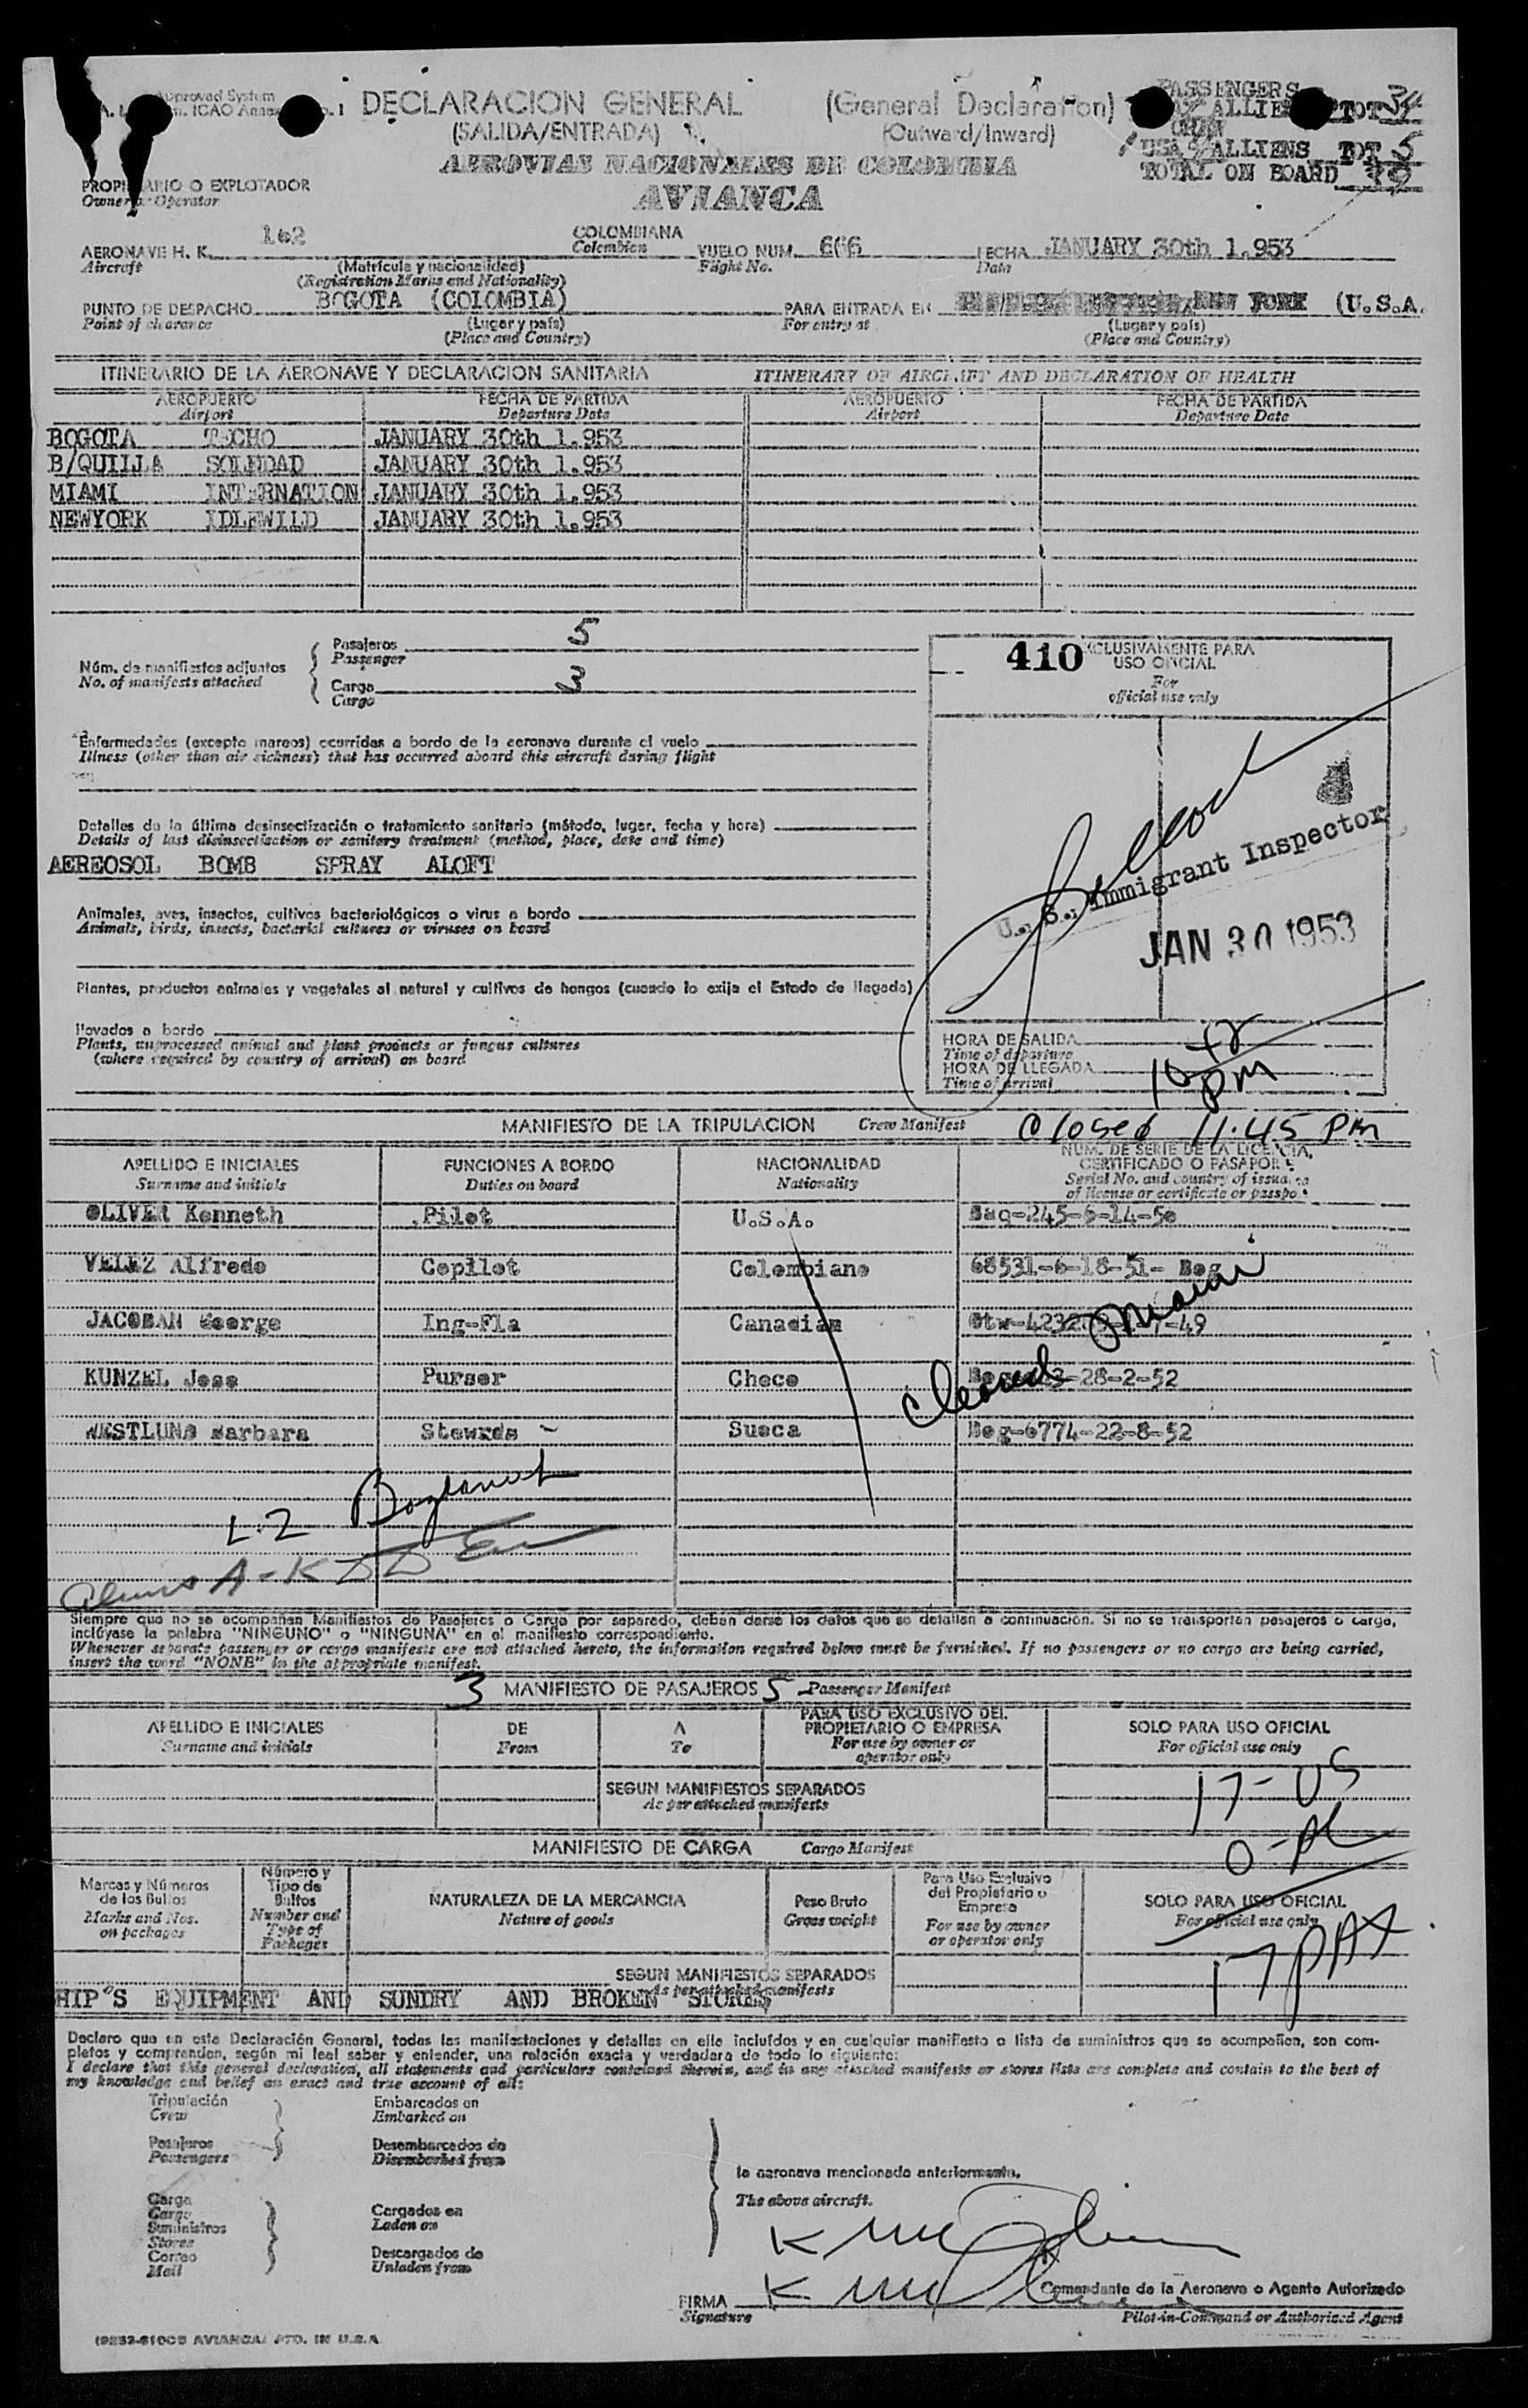 Approved System
DECLARACION GENERAL (General Declaration)
(SALIDA/ENTRADA) (Outward/Inward)
PASSENGERS
ALLIENS TOT 34
CREW
USA ALLIENS TOT 5
TOTAL ON BOARD 39
AEROVIAS NACIONALES DE COLOMBIA
AVIANCA
PROPIETARIO O EXPLOTADOR
Owner or Operator
AERONAVE H. K. 162 COLOMBIANA VUELO NUM. 666 FECHA JANUARY 30th 1.953
Aircraft (Matrícula y nacionalidad) Colombian Flight No. Date
(Registration Marks and Nationality)
PUNTO DE DESPACHO BOGOTA (COLOMBIA) PARA ENTRADA EN NEW YORK (U.S.A.
Point of clearance (Lugar y país) For entry at (Lugar y país)
(Place and Country) (Place and Country)
ITINERARIO DE LA AERONAVE Y DECLARACION SANITARIA ITINERARY OF AIRCRAFT AND DECLARATION OF HEALTH
AEROPUERTO FECHA DE PARTIDA AEROPUERTO FECHA DE PARTIDA
Airport Departure Date Airport Departure Date
BOGOTA TECHO JANUARY 30th 1.953
B/QUILLA SOLEDAD JANUARY 30th 1.953
MIAMI INTERNATION JANUARY 30th 1.953
NEWYORK IDLEWILD JANUARY 30th 1.953
Núm. de manifiestos adjuntos
No. of manifests attached
Pasajeros 5
Passenger
Carga 3
Cargo
410 EXCLUSIVAMENTE PARA
USO OFICIAL
For
official use only
Enfermedades (excepto mareos) ocurridas a bordo de la aeronave durante el vuelo
Illness (other than air sickness) that has occurred aboard this aircraft during flight
Detalles de la última desinsectización o tratamiento sanitario (método, lugar, fecha y hora)
Details of last disinsectisation or sanitary treatment (method, place, date and time)
AEREOSOL BOMB SPRAY ALOFT
Animales, aves, insectos, cultivos bacteriológicos o virus a bordo
Animals, birds, insects, bacterial cultures or viruses on board
U. S. Immigrant Inspector
JAN 30 1953
Plantas, productos animales y vegetales al natural y cultivos de hongos (cuando lo exija el Estado de llegada)
llevados a bordo
Plants, unprocessed animal and plant products or fungus cultures
(where required by country of arrival) on board
HORA DE SALIDA
Time of departure
HORA DE LLEGADA
Time of arrival
PM
MANIFIESTO DE LA TRIPULACION Crew Manifest Closed 11.45 PM
APELLIDO E INICIALES FUNCIONES A BORDO NACIONALIDAD NUM. DE SERIE DE LA LICENCIA,
CERTIFICADO O PASAPORTE
Surname and initials Duties on board Nationality Serial No. and country of issuance
of license or certificate or passport
OLIVER Kenneth Pilot U.S.A. Baq-245-6-14-50
VELEZ Alfredo Copilot Colombiano 68531-6-18-51- Bog
JACOBAN George Ing-Fla Canadian
KUNZEL Jose Purser Checo 28-2-52
WESTLUND Barbara Stewrds Sueca Bog-6774-22-8-52
Cleared Miami
L.Z
A-K
Siempre que no se acompañen Manifiestos de Pasajeros o Carga por separado, deben darse los datos que se detallan a continuación. Si no se transportan pasajeros o carga,
inclúyase la palabra "NINGUNO" o "NINGUNA" en el manifiesto correspondiente.
Whenever separate passenger or cargo manifests are not attached hereto, the information required below must be furnished. If no passengers or no cargo are being carried,
insert the word "NONE" in the appropriate manifest.
3 MANIFIESTO DE PASAJEROS 5 Passenger Manifest
APELLIDO E INICIALES DE A PARA USO EXCLUSIVO DEL
PROPIETARIO O EMPRESA SOLO PARA USO OFICIAL
Surname and initials From To For use by owner or
operator only For official use only
SEGUN MANIFIESTOS SEPARADOS
As per attached manifests
17-US
MANIFIESTO DE CARGA Cargo Manifest
Marcas y Números
de los Bultos
Marks and Nos.
on packages
Número y
Tipo de
Bultos
Number and
Type of
Packages
NATURALEZA DE LA MERCANCIA
Nature of goods
Peso Bruto
Gross weight
Para Uso Exclusivo
del Propietario o
Empresa
For use by owner
or operator only
SOLO PARA USO OFICIAL
For official use only
17 PAX
SEGUN MANIFIESTOS SEPARADOS
As per attached manifests
HIP'S EQUIPMENT AND SUNDRY AND BROKEN STORES
Declaro que en esta Declaración General, todas las manifestaciones y detalles en ella incluídos y en cualquier manifiesto o lista de suministros que se acompañen, son com-
pletos y comprenden, según mi leal saber y entender, una relación exacta y verdadera de todo lo siguiente:
I declare that this general declaration, all statements and particulars contained therein, and in any attached manifests or stores lists are complete and contain to the best of
my knowledge and belief an exact and true account of all:
Tripulación Embarcados en
Crew Embarked on
Pasajeros Desembarcados de
Passengers Disembarked from
la aeronave mencionada anteriormente.
The above aircraft.
Carga
Cargo
Suministros
Stores
Correo
Mail
Cargados en
Laden on
Descargados de
Unladen from
FIRMA Comandante de la Aeronave o Agente Autorizado
Signature Pilot-in-Command or Authorized Agent
AVIANCA PTD. IN U.S.A